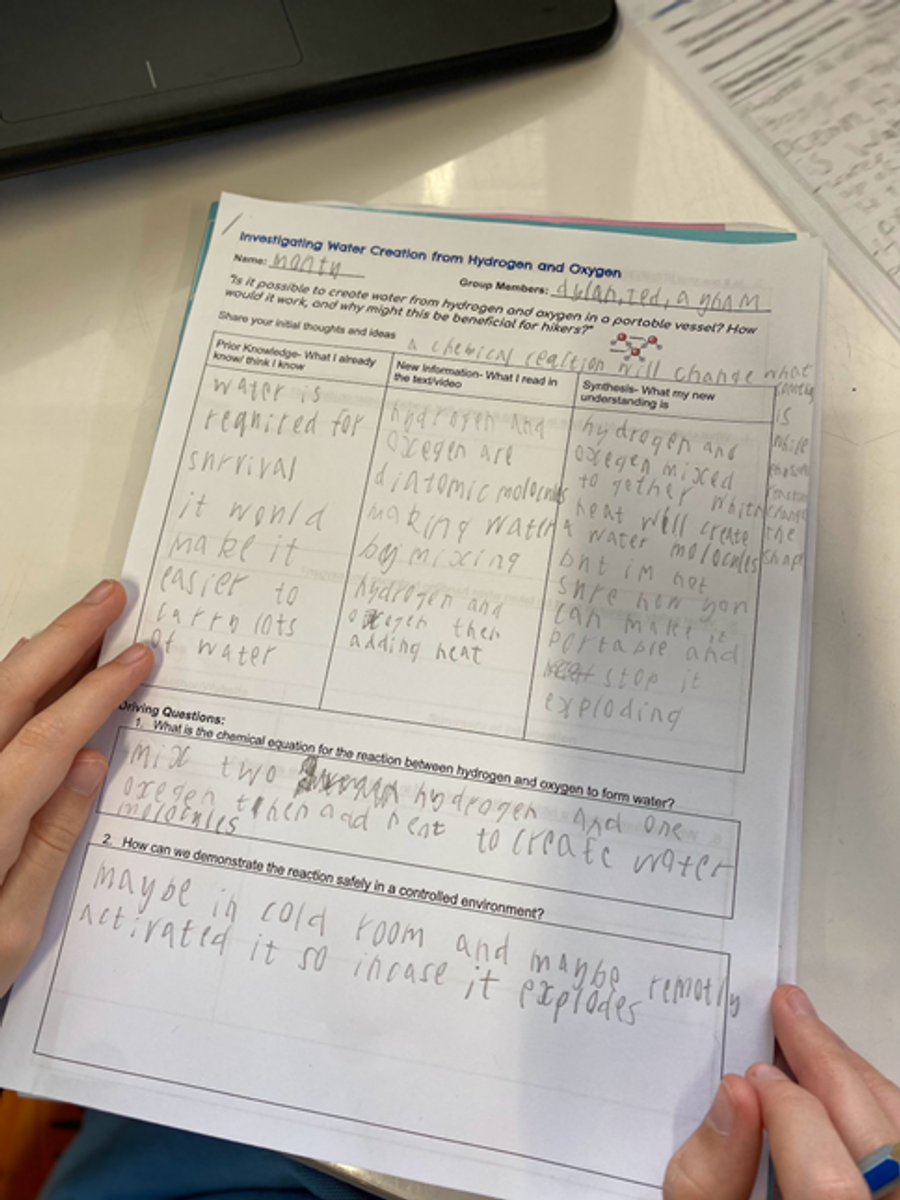 Investigating Water Creation from Hydrogen and Oxygen
Name: monty
Group Members: dylan, ted, ayham
"Is it possible to create water from hydrogen and oxygen in a portable vessel? How
would it work, and why might this be beneficial for hikers?"
Share your initial thoughts and ideas
a chemical reaction will change what
is
while
change
the
shape
Prior Knowledge- What I already
know/ think I know
water is
required for
survival
it would
make it
easier to
carry lots
of water
New Information- What I read in
the text/video
hydrogen and
oxegen are
diatomic molocules
making water
by mixing
hydrogen and
oxegen then
adding heat
Synthesis- What my new
understanding is
hydrogen and
oxegen mixed
to gether whith
heat will create
a water molocules
but im not
sure how you
can make it
portable and
stop it
exploding
Driving Questions:
1. What is the chemical equation for the reaction between hydrogen and oxygen to form water?
mix two hydrogen and one
oxegen then add heat to create water
molocules
2. How can we demonstrate the reaction safely in a controlled environment?
maybe in cold room and maybe remotly
activated it so incase it explodes